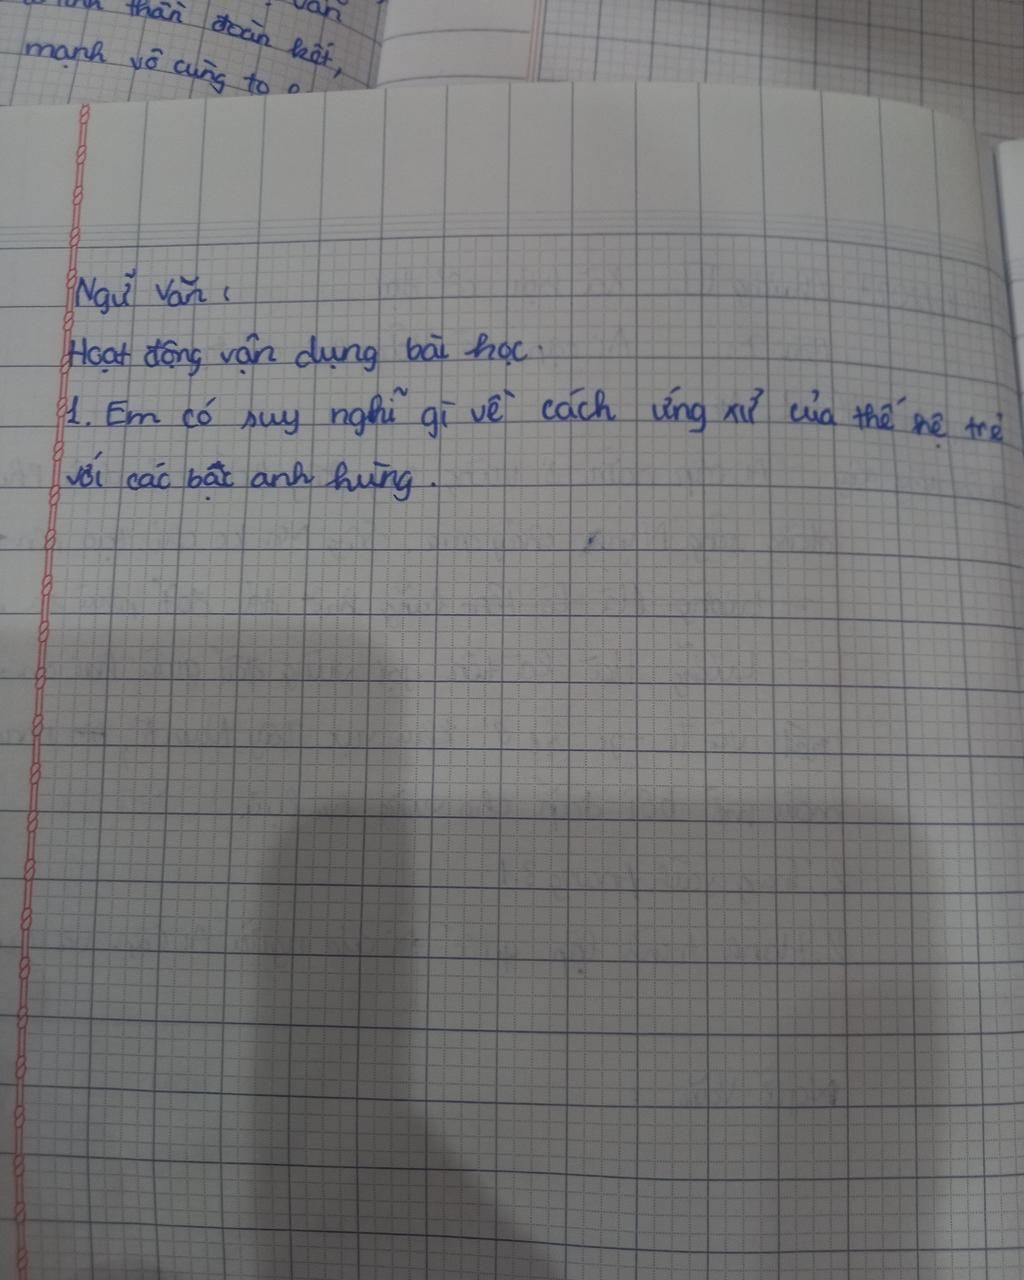 thần đoàn kết,
mạnh vô cùng to
Ngữ Văn :
Hoạt động vận dụng bài học.
1. Em có suy nghĩ gì về cách ứng xử của thế hệ trẻ
với các bật anh hùng.